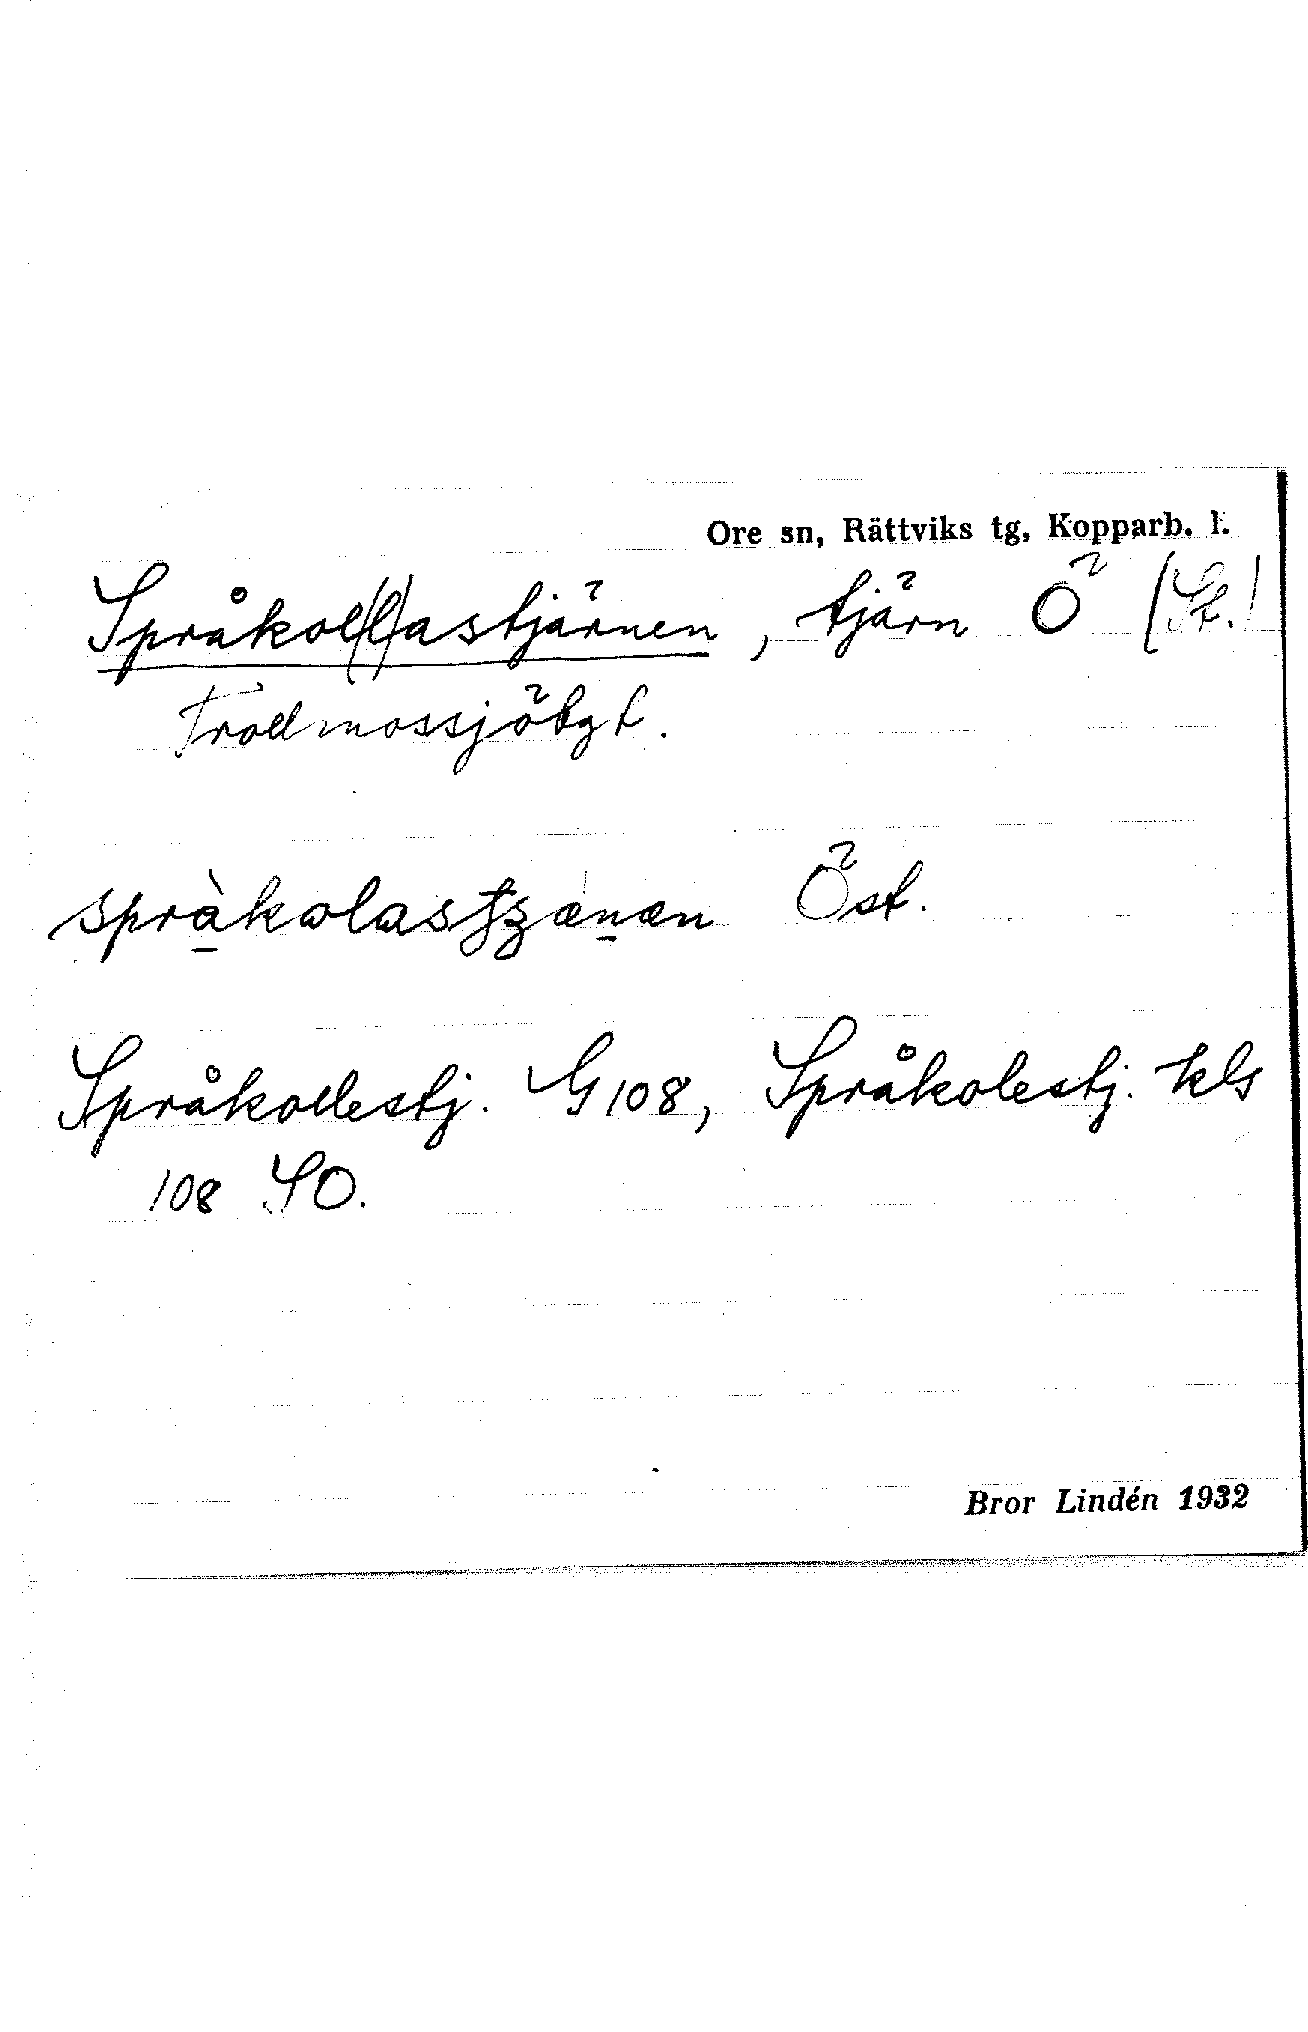 Ore sn, Rättviks tg, Kopparb. l.
Språkol(l)astjärnen, tjärn Ö (St.)
Trollmossjöbgt.
språkolastjänen Öst.
Språkollestj. G 108, Språkolestj. kls
108 SO.
Bror Lindén 1932